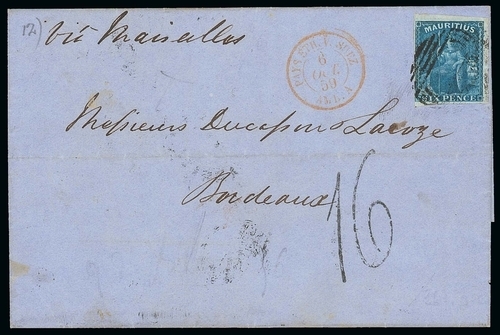 12)
viâ Marseilles
PAYS ETR. V. SUEZ
6
OCT.
59
AMB. A
MAURITIUS
SIX PENCE
Messieurs Ducasson & Lacoze
Bordeaux
16